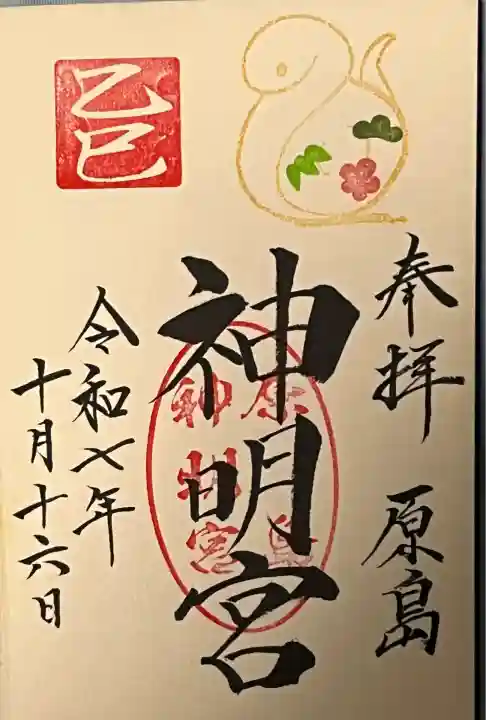 奉拝 原島
神明宮
令和七年
十月十六日
乙巳
原島
神明宮